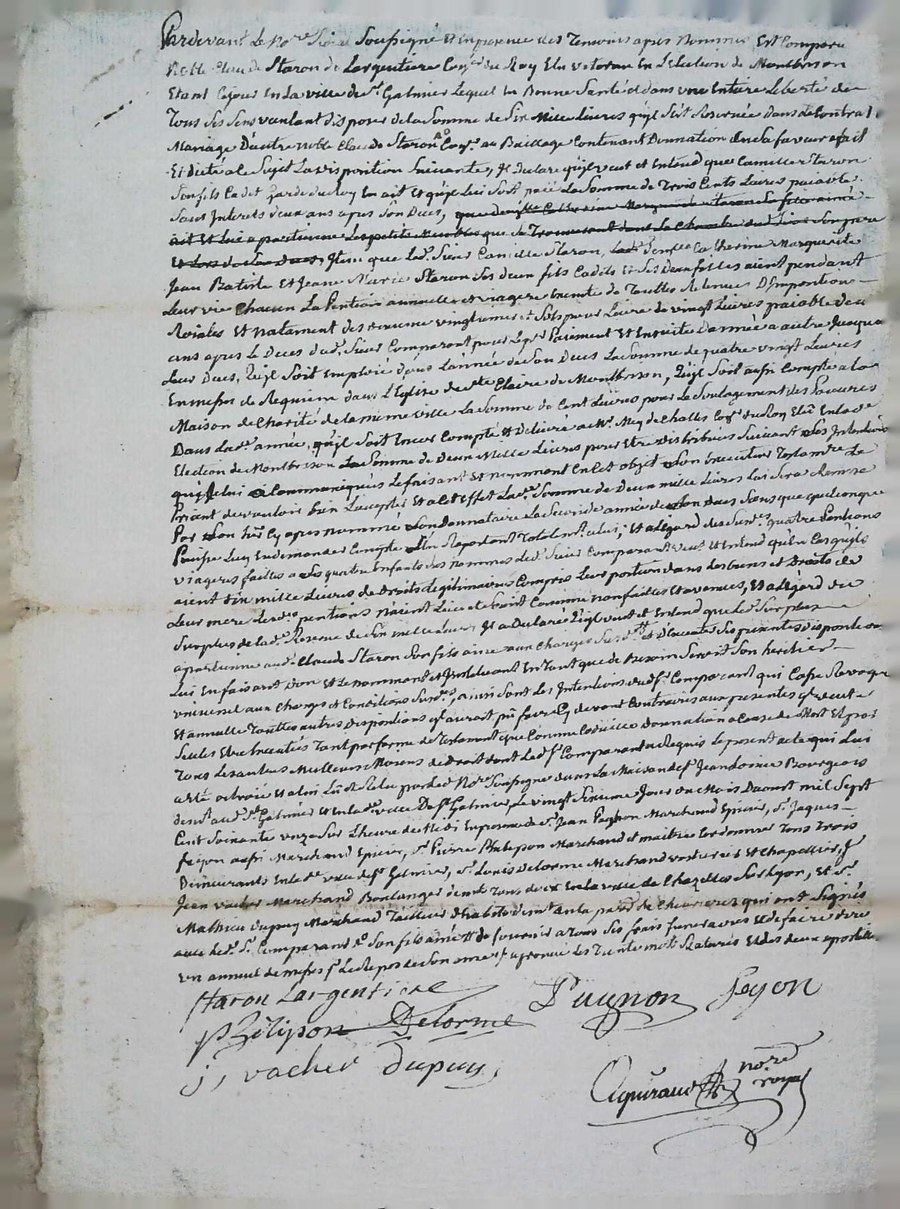 Pardevant Le No.re Soussigné et en presence des Temoins apres Nommés Est Comparu
Noble Claude Staron de Largentiere Con.er du Roy Elu veteran En L'election de Montbrison
Etant Ce jour En La ville de S.t Galmier Lequel En Bonne Santé et dans une Entiere Liberté de
Tous Ses Sens voulant disposer de la Somme de Six Mille Livres qu'il s'est Reservée Dans le Contrat
Mariage D'autre noble Claude Staron Con.er au Bailliage Contenant Donnation En Sa faveur a fait
Et dicté a ce Sujet La disposition Suivante, Il Declare qu'il veut et Entend que Camille Staron
Son fils Cadet Garde du Roy En ait et qu'il lui Soit paié La Somme de Trois Cents Livres paiable
Sans Interets deux ans apres Son Deces, que dem.lle Catherine Marguerite Staron Sa fille ainée
ait et Lui apartienne Les petits Meubles que Se Trouveront dans La Chambre du S.r Son pere
Et Lors de Son Deces, Item que Led. Sieur Camille Staron, Lad. Dem.lle Catherine Marguerite
Jean Batiste Et Jeanne Marie Staron Ses deux fils Cadets et Ses Deux filles aient pendant
Leur vie Chacun La Pention annuelle et viagere Exempte de Toutes Retenues D'Imposition
Roiales Et notament des vingtiemes et Sols pour Livre de vingt Livres paiable deux
ans apres Le Deces dud. Sieur Comparant pour Le p.er Paiement Et Ensuite D'année a autre Jusqua
Leur Deces, Qu'il Soit Emploié dans L'année de Son Deces La Somme de quatre vingt Livres
En messes de Requiem dans L'Eglise de S.te Claire de Montbrison, Qu'il Soit aussi Compté a la
Maison de Charité de la même ville La Somme de Cent Livres pour Le Soulagement des Pauvres
Dans Lad. année, qu'il Soit Encor Compté et Délivré a M.r Mey de Challes Con.er du Roy Elu En lad.
Election de Montbrison La Somme de Deux Mille Livres pour Etre distribués Suivant Ses Intentions
qu'il lui a Communiquées Le faisant Et nommant En Cet objet Son Executeur Testamentaire Le
Priant de vouloir bien L'accepter Et a Cet Effet Lad. Somme de Deux mille Livres Lui Sera Remise
Par Son her. Cy apres nommé Son Donnataire La Seconde année de Son Deces Sans que quelconque
Puisse Lui En demander Compte S'En Raportant Totalement a celui, Et a L'egard des Susd. quatre Pentions
viageres faites a Ses quatre Enfants Sus nommés led. Sieur Comparant Veut et Entend qu'En Cas qu'ils
aient Six mille Livres de Droits Legitimaires Compris Leur portion dans Les biens et Droits de
Leur mere Lesd. pentions n'aient Lieu et Soient Comme non faites et avenues, Et a L'egard du
Surplus de lad. Reserve de Six mille Livres Il a Declaré qu'il veut et Entend que Led. Surplus
apartienne aud. Claude Staron Son fils ainé aux Charges Susd. Et D'executer Ses presentes dispositions
Lui En faisant Don Et Le nommant et Instituant En Tant que de besoin Seroit Son heritier
universel aux Charges et Conditions Susd. ainsi Sont Les Intentions dud. S.r Comparant qui Casse Revoque
Et annulle Toutes autres dispositions qu'il auroit pû faire Cy devant Contraires aux presentes qu'il veut
Seules Etre Executées Tant par forme de Testament que Comme Codicille donnation a Cause de Mort Et par
Tous Les autres Meilleurs Moiens de Droit dont Led. S.r Comparant a Requis Le present acte qui Lui
a Eté octroié Et a lui Lû et Relu par led. No.re Soussigné dans La Maison de S.r Jean Bourgeois
dud. S.t Galmier Et En lad. ville De S.t Galmier Le vingt Sixieme Jour du Mois D'aoust mil Sept
Cent Soixante onze Sur L'heure de Midi En presence de S.r Jean Pugnon Marchand Epicier, S.r Jaques
Feyon aussi Marchand Epicier, S.r Pierre Philipon Marchand et maitre Cordonnier Tous Trois
Demeurants En lad. ville de S.t Galmier, S.r Louis Delorme Marchand voiturier Et Chapellier, S.r
Jean vacher Marchand Boulanger dem.t Tous deux En la ville de Chazelles Sur Lyon, et S.r
Mathieu Dupuy Marchand Tailleur d'habits dem.t En la par.sse de Chevrieres qui ont Signés
avec led. S.r Comparant Son fils ainé et de fournir a Tous Ses frais funeraires et de faire dire
un annuel de messes p.r Le Repos de Son ame aprouvé Les Trente mots Raturés Et des deux apostilles
Staron Largentiere Pugnon Feyon
Philipon Delorme
J, vacher dupuy
Aguiraud no.re royal